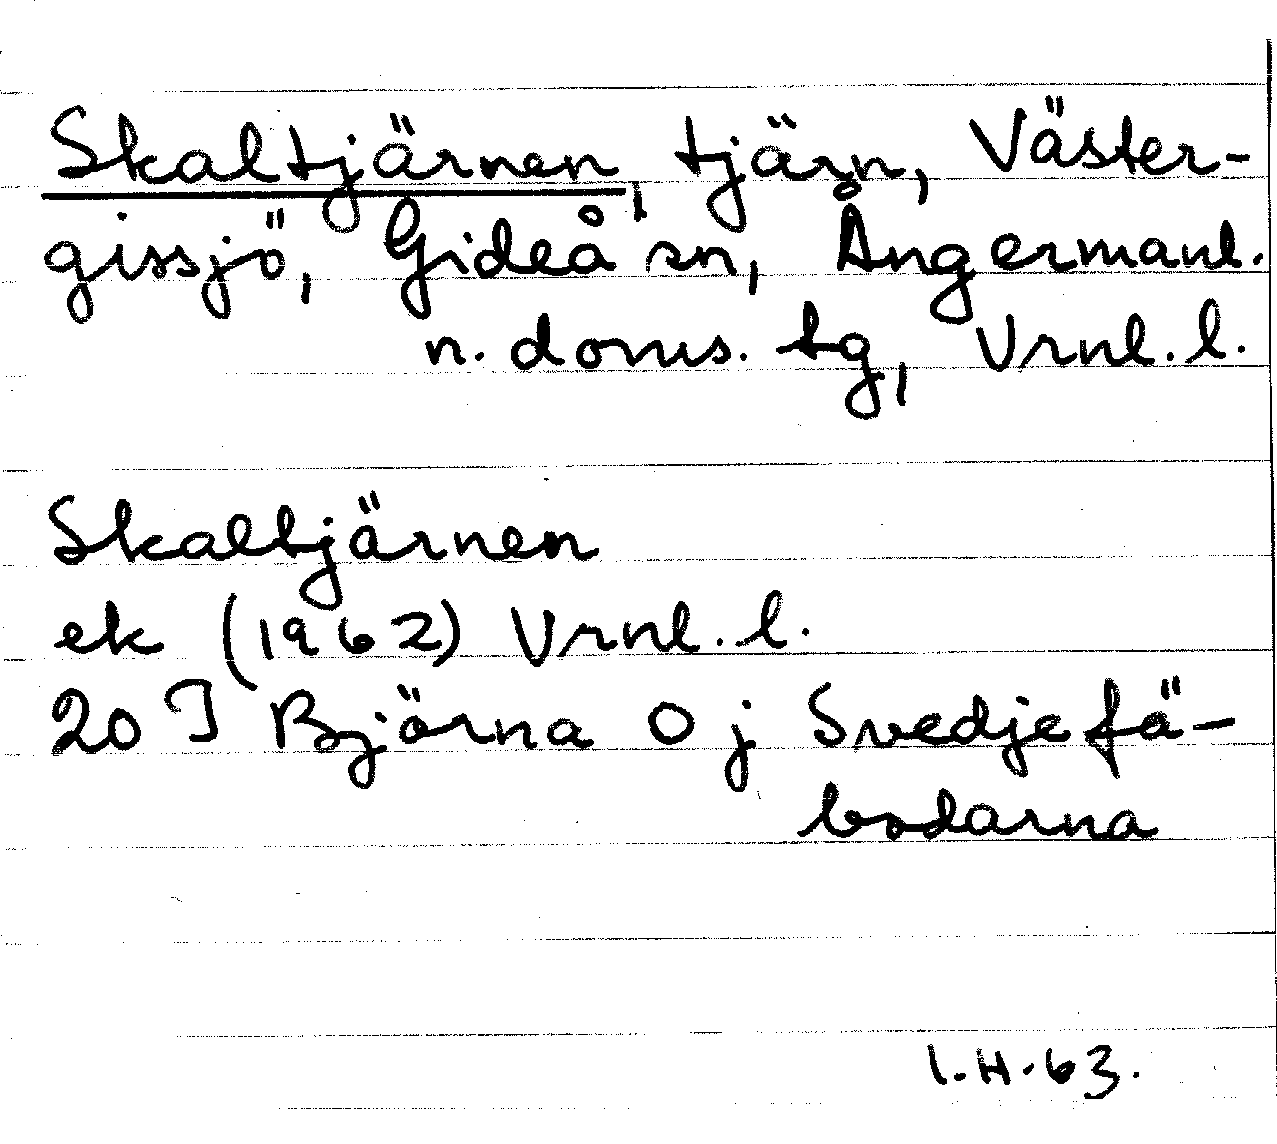 Skaltjärnen, tjärn, Väster-
gissjö, Gideå sn, Ångermanl.
n. doms. tg, Vrnl. l.
Skaltjärnen
ek (1962) Vrnl. l.
20 I Björna O j Svedjefä-
bodarna
I.H.63.